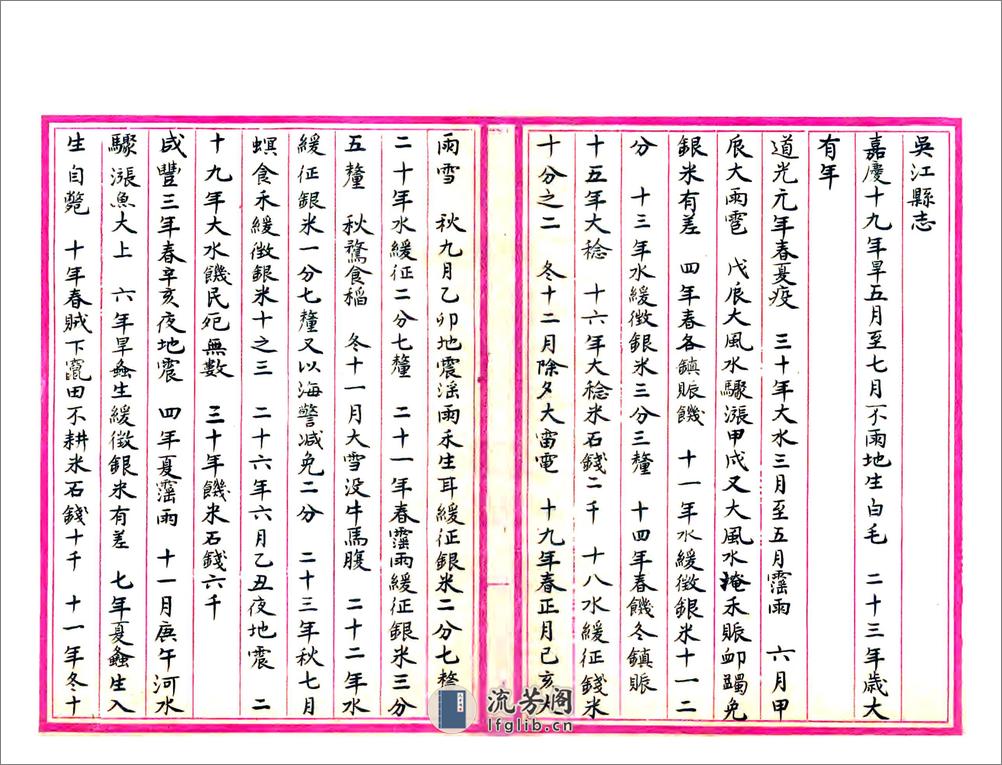 吳江縣志
嘉慶十九年旱五月至七月不雨地生白毛　二十三年歲大
有年
道光元年春夏疫　三十年大水三月至五月霪雨　六月甲
辰大雨雹　戊辰大風水驟漲甲戌又大風水掩禾賑卹蠲免
銀米有差　四年春各鎮賑饑　十一年水緩徵銀米十一二
分　十三年水緩徵銀米三分三釐　十四年春饑冬鎮賑
十五年大稔　十六年大稔米石錢二千　十八水緩征錢米
十分之二　冬十二月除夕大雷電　十九年春正月己亥
雨雪　秋九月乙卯地震淫雨禾生耳緩征銀米二分七釐
二十年水緩征二分七釐　二十一年春霪雨緩征銀米三分
五釐　秋鶩食稻　冬十一月大雪没牛馬腹　二十二年水
緩征銀米一分七釐又以海警減免二分　二十三年秋七月
螟食禾緩徵銀米十之三　二十六年六月乙丑夜地震　二
十九年大水饑民死無數　三十年饑米石錢六千
咸豐三年春辛亥夜地震　四年夏霪雨　十一月庚午河水
驟漲魚大上　六年旱螽生緩徵銀米有差　七年夏螽生入
生自斃　十年春賊下竄田不耕米石錢十千　十一年冬十
流芳阁
lfglib.cn